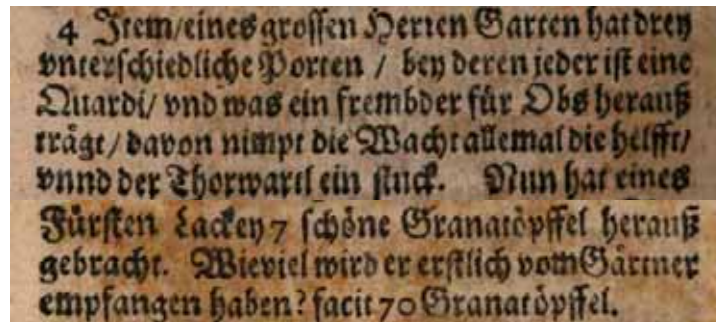 4 Item/eines grossen Herren Garten hat drey
vnterschiedliche Porten / bey deren jeder ist eine
Quardi/ vnd was ein frembder für Obs herauß
trägt/ davon nimpt die Wacht allemal die helfft/
vnnd der Thorwartl ein stuck. Nun hat eines
Fürsten Lackey 7 schöne Granatöpffel herauß
gebracht. Wieviel wird er erstlich vom Gärtner
empfangen haben? facit 70 Granatöpffel.